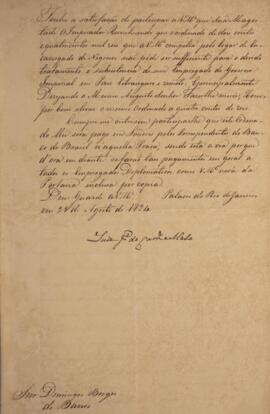 Tenho a satisfação de participar a V. Mce que Sua Magestade
o Imperador Reconhecendo que o ordenado de dous contos
e quatrocentos mil reis que a V. Mce competia pelo lugar de Encarregado
de Negocios não pode ser sufficiente para o devido
tratamento e subsistencia de um Empregado do Governo
Imperial em Pais Estrangeiro e remoto: E principalmente
Desejando o Mesmo Augusto Senhor
por bem elevar o mesmo Ordenado a quatro contos de reis.
Cumpre-me outrosim participar-lhe que este Ordenado
lhe será pago em Londres pelos Correspondentes do Banco
do Brasil n'aquella Praça, sendo esta a via porque
d'ora em diante se farão taes pagamentos em geral a
todos os Empregados Diplomaticos, como V. Mce verá da
Portaria inclusa por copia.
Deos Guarde a V. Mce. Palacio do Rio de Janeiro
em 24 de Agosto de 1824.
Luiz José de Carvalho e Mello
Snr. Domingos Borges
de Barros